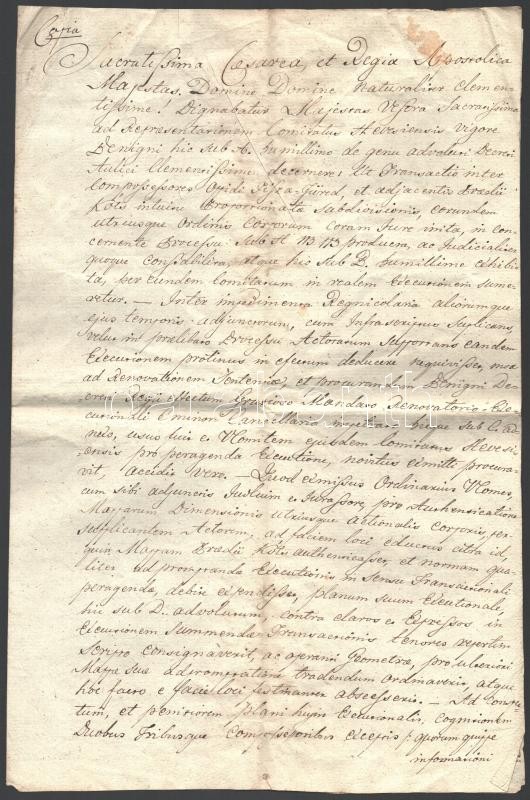 Copia
Sacratissima Caesarea, et Regia Apostolica
Majestas, Domine Domine Naturaliter Clemen-
tissime! Dignabatur Majestas Vestra Sacratissima
ad Representationem Comitatus Hevesiensis vigore
Benigni hic sub A. humillime de genu advoluti Decreti
Aulici Clementissime decernere; Ut Transactio inter
Compossessores Oppidi Tisza-Füred, et adjacentis Praedii
Kóts intuitu Proportionata Subdivisionis eorundem
utriusque Ordinis Corporum coram Jure inita, in con-
cernente Processu Sub producta, ac Judicialiter
quoque atque hic Sub B, humillime exhibi-
ta, per eundem Comitatum in realem Executionem sume-
retur. — Inter impedimenta Regnicolaria aliorumque
ejus temporis adjunctorum, cum Infrascriptus Suplicans,
velut in praelibato Processu Actoratum Suffer­ans eandem
Executionem protinus in effectum deducere nequivisset, mox
ad Renovationem Sententiae, et procuratum Benigni De-
creti Regii effectum Mandato Renovatorio Exe-
cutionali Cancellaria hicque Sub C. ad-
nexo, usus V Comitem ejusdem Comitatus Hevesi-
ensis pro peragenda Executione, exmitti procura-
vit, accidit vero. — Quod exmissus Ordinarius VComes,
cum sibi adjunctis Judlium et Jurassore, pro Authenticatione
Mapparum Dimensionis utriusque Actionalis Corporis, per
Suplicantem Actorem, ad faciem loci eductus citra id
quin Mapam Praedii Kóts authenticasset, et normam qua-
liter ad Executionis in Sensu Transactionali
peragenda, debite planum suum Executionale,
hic sub D. advolutum, contra claros et Expressos in
Executionem Summenda Transactionis tenores
Scripto consignaverit, ac operanti Geometrae, pro ulteriori
Mapae suae tradendum Ordinaverit, atque
hoc facto e facie loci festinanter abscesserit. — Ad
tum, et penitiorem plani hujus Executionalis, cognitionem
Duobus Tribusque Compossessoribus exceptis /: quorum quippe
informationi